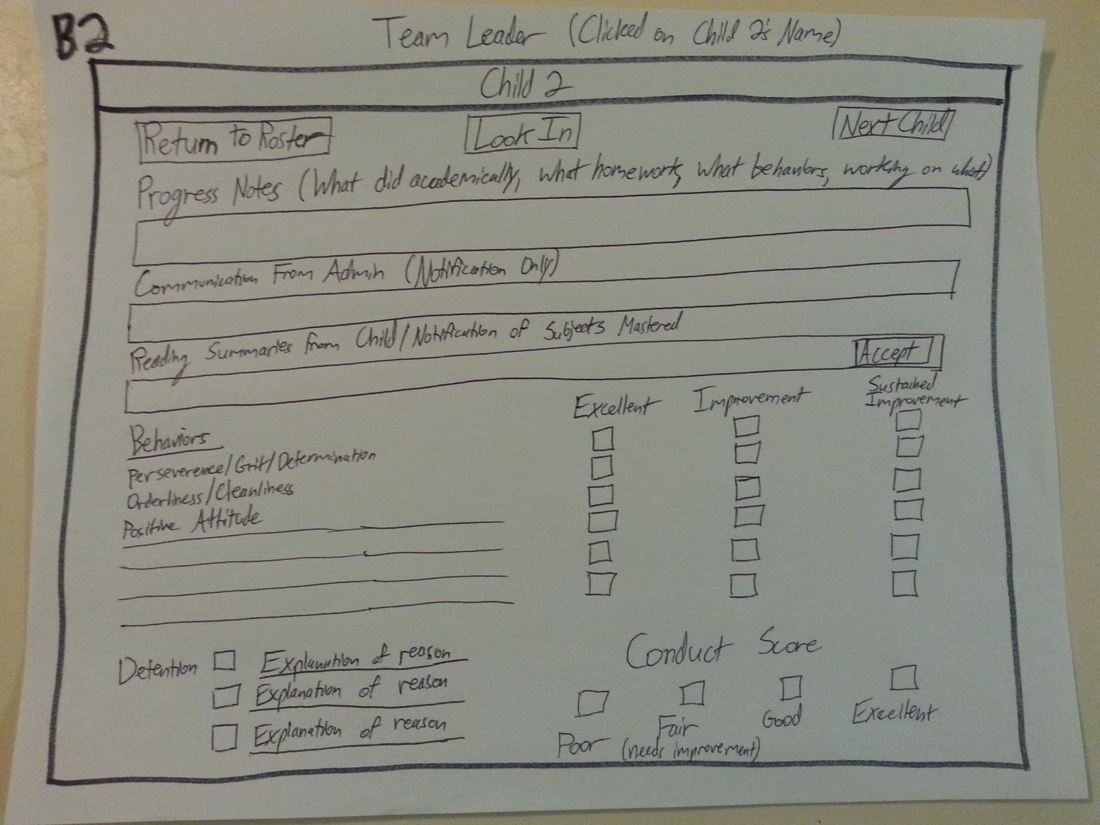 B2
Team Leader (Clicked on Child 2's Name)
Child 2
Return to Roster
Look In
Next Child
Progress Notes (What did academically, what homework, what behaviors, working on what)
Communication From Admin (Notification Only)
Reading Summaries from Child/Notification of Subjects Mastered
Accept
Excellent
Improvement
Sustained
Improvement
Behaviors
Perseverence/Grit/Determination
Orderliness/Cleanliness
Positive Attitude
Detention
Explanation of reason
Explanation of reason
Explanation of reason
Conduct Score
Poor
Fair
(needs improvement)
Good
Excellent